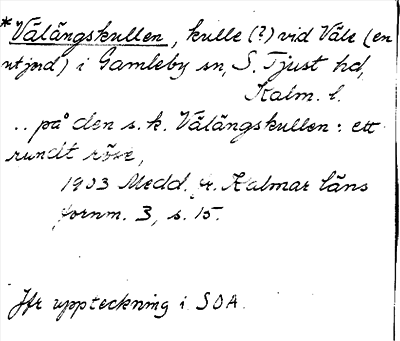 *Valängskullen, kulle (?) vid Väle (en
utjord) i Gamleby sn, S. Tjust hd,
Kalm. l.
.. på den s. k. Välängskullen: ett
rundt röse,
1903 Medd. fr. Kalmar läns
fornm. 3, s. 15.
Jfr uppteckning i SOA.